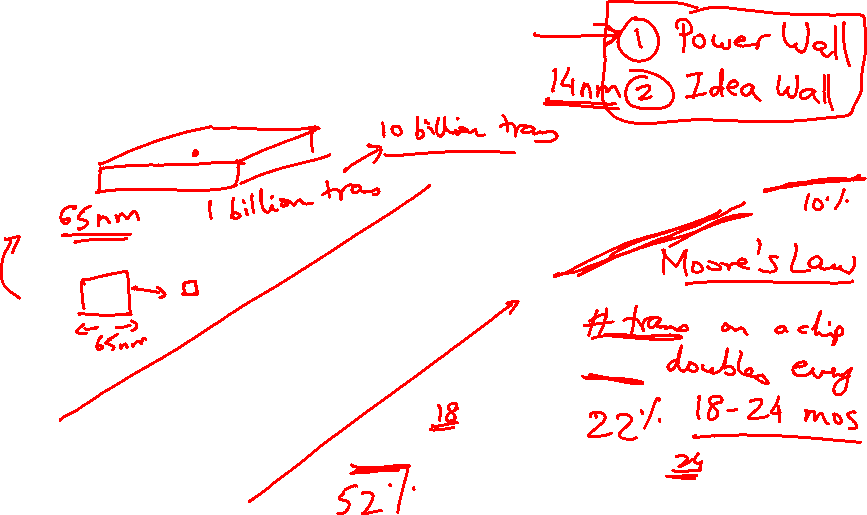 1 Power Wall
14nm 2 Idea Wall
10 billion trans
1 billion trans
65nm
10%
Moore's Law
65nm
# trans on a chip
doubles every
22% 18-24 mos
18
24
52%